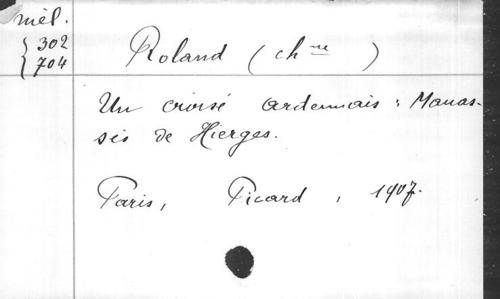 mèl.
{302
{704
Roland (chne)
Un croisé ardennais : Manas-
sès de Hierges.
Paris, Picard, 1907.